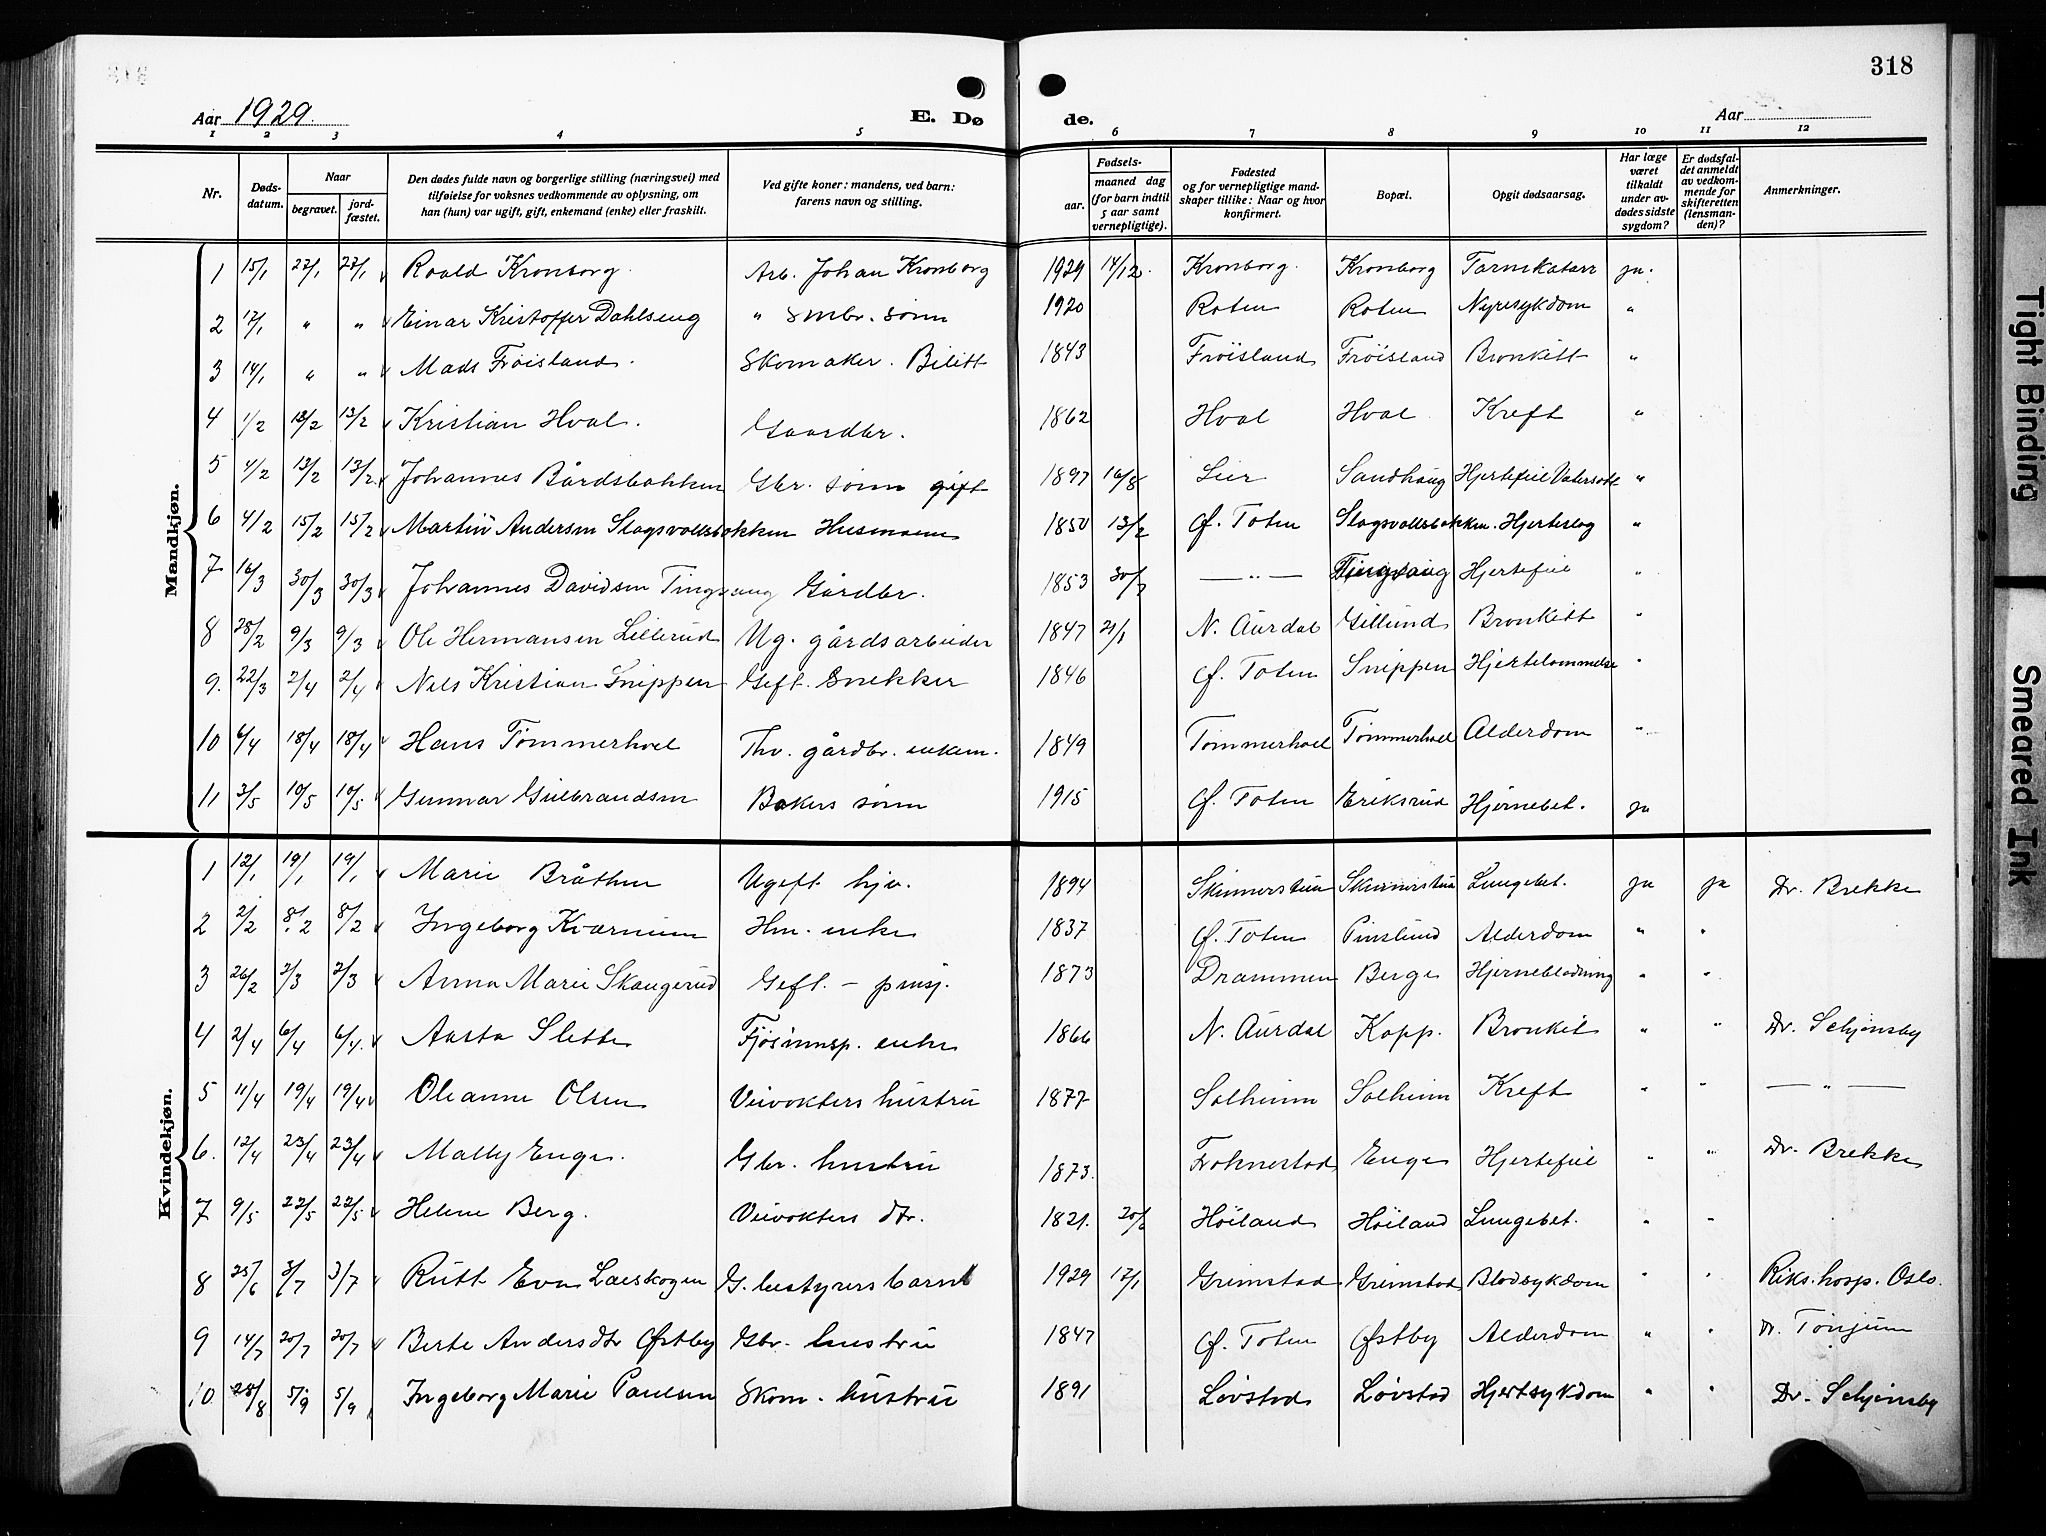 318
Aar 1929. E. Dø de. Aar
1 2 3 4 5 6 7 8 9 10 11 12
Nr. Døds-datum. Naar begravet. jord-fæstet. Den dødes fulde navn og borgerlige stilling (næringsvei) med tilføielse for voksnes vedkommende av oplysning, om han (hun) var ugift, gift, enkemand (enke) eller fraskilt. Ved gifte koner: mandens, ved barn: farens navn og stilling. Fødsels- aar. maaned dag (for barn indtil 5 aar samt vernepligtige). Fødested og for vernepligtige mandskaper tillike: Naar og hvor konfirmert. Bopæl. Opgit dødsaarsag. Har læge været tilkaldt under avdødes sidste sygdom? Er dødsfaldet anmeldt av vedkommende for skifteretten (lensmanden)? Anmerkninger.
Mandkjøn.
1 15/1 27/1 27/1 Roald Kronborg. Arb. Johan Kronborg 1929 14/12. Kronborg. Kronborg Tarmkatarr ja.
2 17/1 " " Einar Kristoffer Dahlseng " Smbr. sønn 1920 Roten Roten Nyresykdom "
3 14/1 " " Mads Frøisland. Skomaker. Bilitt 1843 Frøisland Frøisland Bronkitt "
4 1/2 13/2 13/2 Kristian Hval. Gaardbr. 1862 Hval Hval Kreft "
5 4/2 13/2 13/2 Johannes Bårdsbakken Gbr. sønn gift 1897 16/8 Lier Sandhaug Hjertefeil Vatersott "
6 4/2 15/2 15/2 Martin Andersen Slagsvollsbakken Husmann 1850 13/2 Ø. Toten Slagsvollsbakken. Hjerteslag "
7 16/3 30/3 30/3 Johannes Davidsen Tingvang Gårdbr. 1853 30/7 — " — Tingvang Hjertefeil "
8 28/2 9/3 9/3 Ole Hermansen Lillerud Ug. gårdsarbeider 1847 21/1 N. Aurdal Gillund Bronkitt "
9. 22/3 2/4 2/4 Nils Kristian Snippen Gift. Snekker 1846 Ø. Toten Snippen Hjertelammelse "
10 6/4 18/4 18/4 Hans Tømmerhoel Thv. gårdbr. enkem. 1849 Tømmerhoel Tømmerhoel Alderdom "
11 3/5 10/5 10/5 Gunnar Gulbrandsen Bakers sønn 1915 Ø. Toten Eriksrud Hjernebet. ja
Kvindekjøn.
1 12/1 19/1 19/1 Marie Bråthen Ugift. hjv. 1894 Skinnerstua Skinnerstua Lungebet. ja ja Dr. Brekke
2 2/2 8/2 8/2 Ingeborg Kværnum Hm. enke 1837 Ø. Toten Pinslund Alderdom " "
3 26/2 2/3 2/3 Anna Marie Skaugerud Gift. – pensj. 1873 Drammen Berge Hjerneblødning " "
4 2/4 6/4 6/4. Aasta Slette Fjøsinnsp. enke 1866 N. Aurdal Kopp. Bronkit " " Dr. Schjønsby
5 11/4 19/4 19/4 Oleanne Olsen Veivokters hustru 1877 Solheim Solheim Kreft " " — " —
6. 12/4 23/4 23/4 Mally Enge. Gbr. hustru 1873. Foknestad Enge Hjertefeil " " Dr. Brekke
7 9/5 22/5 22/5 Helene Berg. Veivokters dtr. 1821. 20/2 Høiland Høiland Lungebet. " "
8 25/6 3/7 3/7 Rutt Eva Laeskogen G. bestyrers barn 1929 17/1 Grimstad Grimstad Blodsykdom " " Riks.hosp. Oslo.
9 14/7 20/7 20/7 Berte Andersdtr Østby Gbr. hustru 1847 Ø. Toten Østby Alderdom " " Dr. Tønjum
10 28/8 5/9 5/9 Ingeborg Marie Paulsen Skom. hustru 1891 Løvstad Løvstad Hjertsykdom " " Dr. Schjønsby
Tight Binding
Smeared Ink